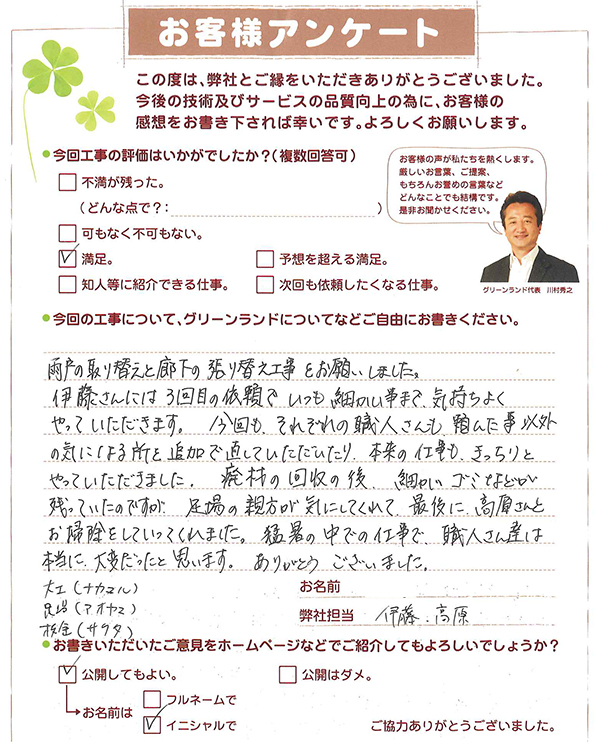 お客様アンケート
この度は、弊社とご縁をいただきありがとうございました。
今後の技術及びサービスの品質向上の為に、お客様の
感想をお書き下されば幸いです。よろしくお願いします。
今回工事の評価はいかがでしたか?(複数回答可)
不満が残った。
(どんな点で?: )
可もなく不可もない。
満足。
予想を超える満足。
知人等に紹介できる仕事。
次回も依頼したくなる仕事。
お客様の声が私たちを熱くします。
厳しいお言葉、ご提案、
もちろんお誉めの言葉など
どんなことでも結構です。
是非お聞かせください。
グリーンランド代表 川村秀之
今回の工事について、グリーンランドについてなどご自由にお書きください。
雨戸の取り替えと廊下の張り替え工事をお願いしました。
伊藤さんには3回目の依頼でいつも細かい事まで、気持ちよく
やっていただきます。 今回も、それぞれの職人さんも、頼んだ事以外
の気になる所を追加で直していただいたり、本来の仕事も、きっちりと
やっていただきました。 廃材の回収の後、細かいゴミなどが
残っていたのですが、足場の親方が気にしてくれて、最後に、高原さんと
お掃除をしていってくれました。猛暑の中での仕事で、職人さん達は
本当に、大変だったと思います。 ありがとうございました。
大工(ナカマル)
足場(アオヤマ)
板金(サワタ)
お名前
弊社担当 伊藤、高原
お書きいただいたご意見をホームページなどでご紹介してもよろしいでしょうか?
公開してもよい。
公開はダメ。
お名前は
フルネームで
イニシャルで
ご協力ありがとうございました。